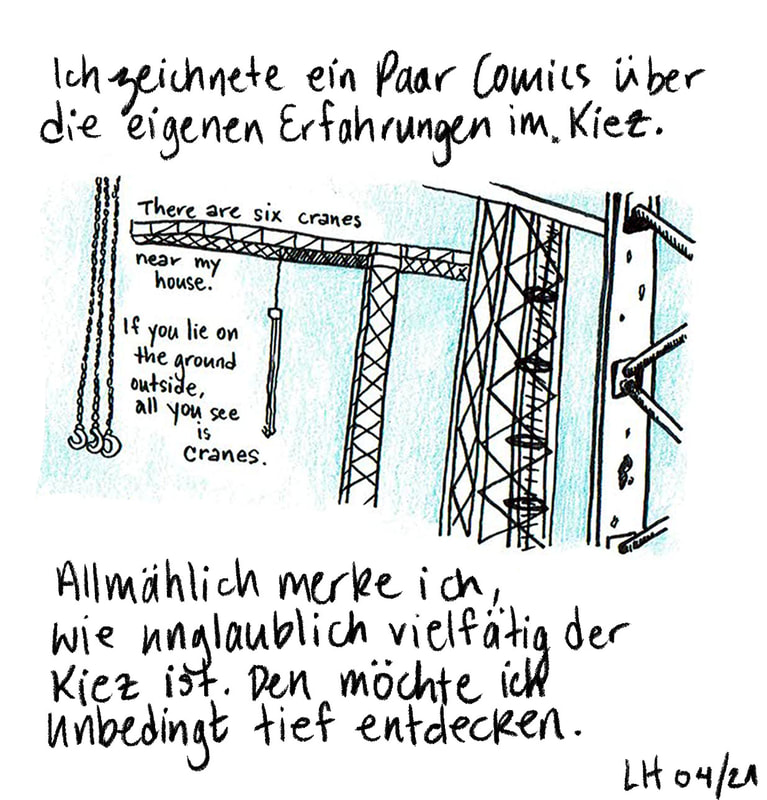 Ich zeichnete ein Paar Comics über
die eigenen Erfahrungen im Kiez.
There are six cranes
near my
house.
If you lie on
the ground
outside,
all you see
is
cranes.
Allmählich merke ich,
wie unglaublich vielfätig der
Kiez ist. Den möchte ich
unbedingt tief entdecken.
LH 04/21